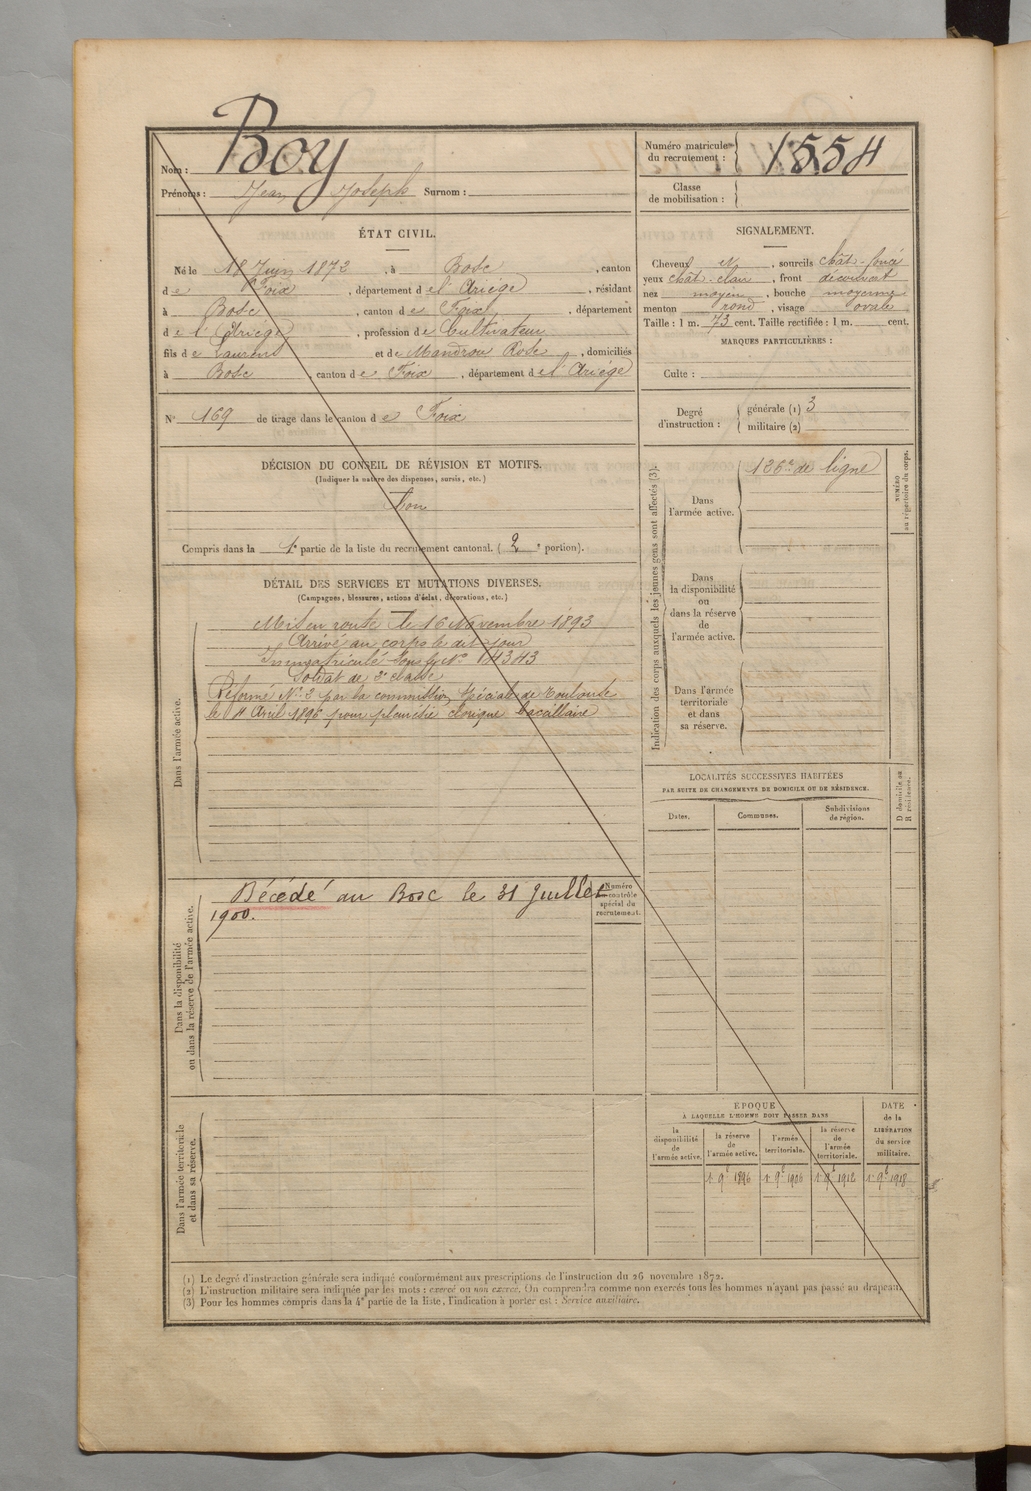 Nom : Boy
Prénoms : Jean Joseph Surnom :
Numéro matricule du recrutement : 1554
Classe de mobilisation :
ÉTAT CIVIL.
Né le 18 Juin 1872, à Bosc, canton
de Foix, département de l'Ariège, résidant
à Bosc, canton de Foix, département
de l'Ariège, profession de Cultivateur
fils de Laurent et de Mandrou Rose, domiciliés
à Bosc, canton de Foix, département de l'Ariège
N° 169 de tirage dans le canton de Foix
SIGNALEMENT.
Cheveux et, sourcils chât-foncé
yeux chât-clair, front découvert
nez moyen, bouche moyenne
menton rond, visage ovale
Taille : 1 m. 73 cent. Taille rectifiée : 1 m. cent.
MARQUES PARTICULIÈRES :
Culte :
Degré d'instruction : générale (1) 3
militaire (2)
DÉCISION DU CONSEIL DE RÉVISION ET MOTIFS.
(Indiquer la nature des dispenses, sursis, etc.)
Bon
Compris dans la 1e partie de la liste du recrutement cantonal. (2e portion).
DÉTAIL DES SERVICES ET MUTATIONS DIVERSES.
(Campagnes, blessures, actions d'éclat, décorations, etc.)
Dans l'armée active.
Mis en route le 16 Novembre 1893
Arrivé au corps le dit jour
Immatriculé sous le N° 4343
Soldat de 2e classe
Réformé N° 2 par la commission spéciale de Toulouse
le 4 Avril 1896 pour pleurésie chronique bacillaire
Dans la disponibilité
ou dans la réserve de l'armée active.
Décédé au Bosc le 31 Juillet
1900.
Numéro
au contrôle
spécial du
recrutement.
Dans l'armée territoriale
et dans sa réserve.
Indication des corps auxquels les jeunes gens sont affectés (3).
Dans
l'armée active.
126e de ligne
NUMÉRO
au répertoire du corps.
Dans
la disponibilité
ou
dans la réserve
de
l'armée active.
Dans l'armée
territoriale
et dans
sa réserve.
LOCALITÉS SUCCESSIVES HABITÉES
PAR SUITE DE CHANGEMENTS DE DOMICILE OU DE RÉSIDENCE.
Dates.
Communes.
Subdivisions
de région.
D domicile ou
R résidence.
ÉPOQUE
À LAQUELLE L'HOMME DOIT PASSER DANS
la
disponibilité
de
l'armée active.
la réserve
de
l'armée active.
l'armée
territoriale.
la réserve
de
l'armée
territoriale.
DATE
de la
LIBÉRATION
du service
militaire.
1er 9e 1896 1er 9e 1906 1er 9e 1912 1er 9e 1918
(1) Le degré d'instruction générale sera indiqué conformément aux prescriptions de l'instruction du 26 novembre 1872.
(2) L'instruction militaire sera indiquée par les mots : exercé ou non exercé. On comprendra comme non exercés tous les hommes n'ayant pas passé au drapeau.
(3) Pour les hommes compris dans la 4e partie de la liste, l'indication à porter est : Service auxiliaire.